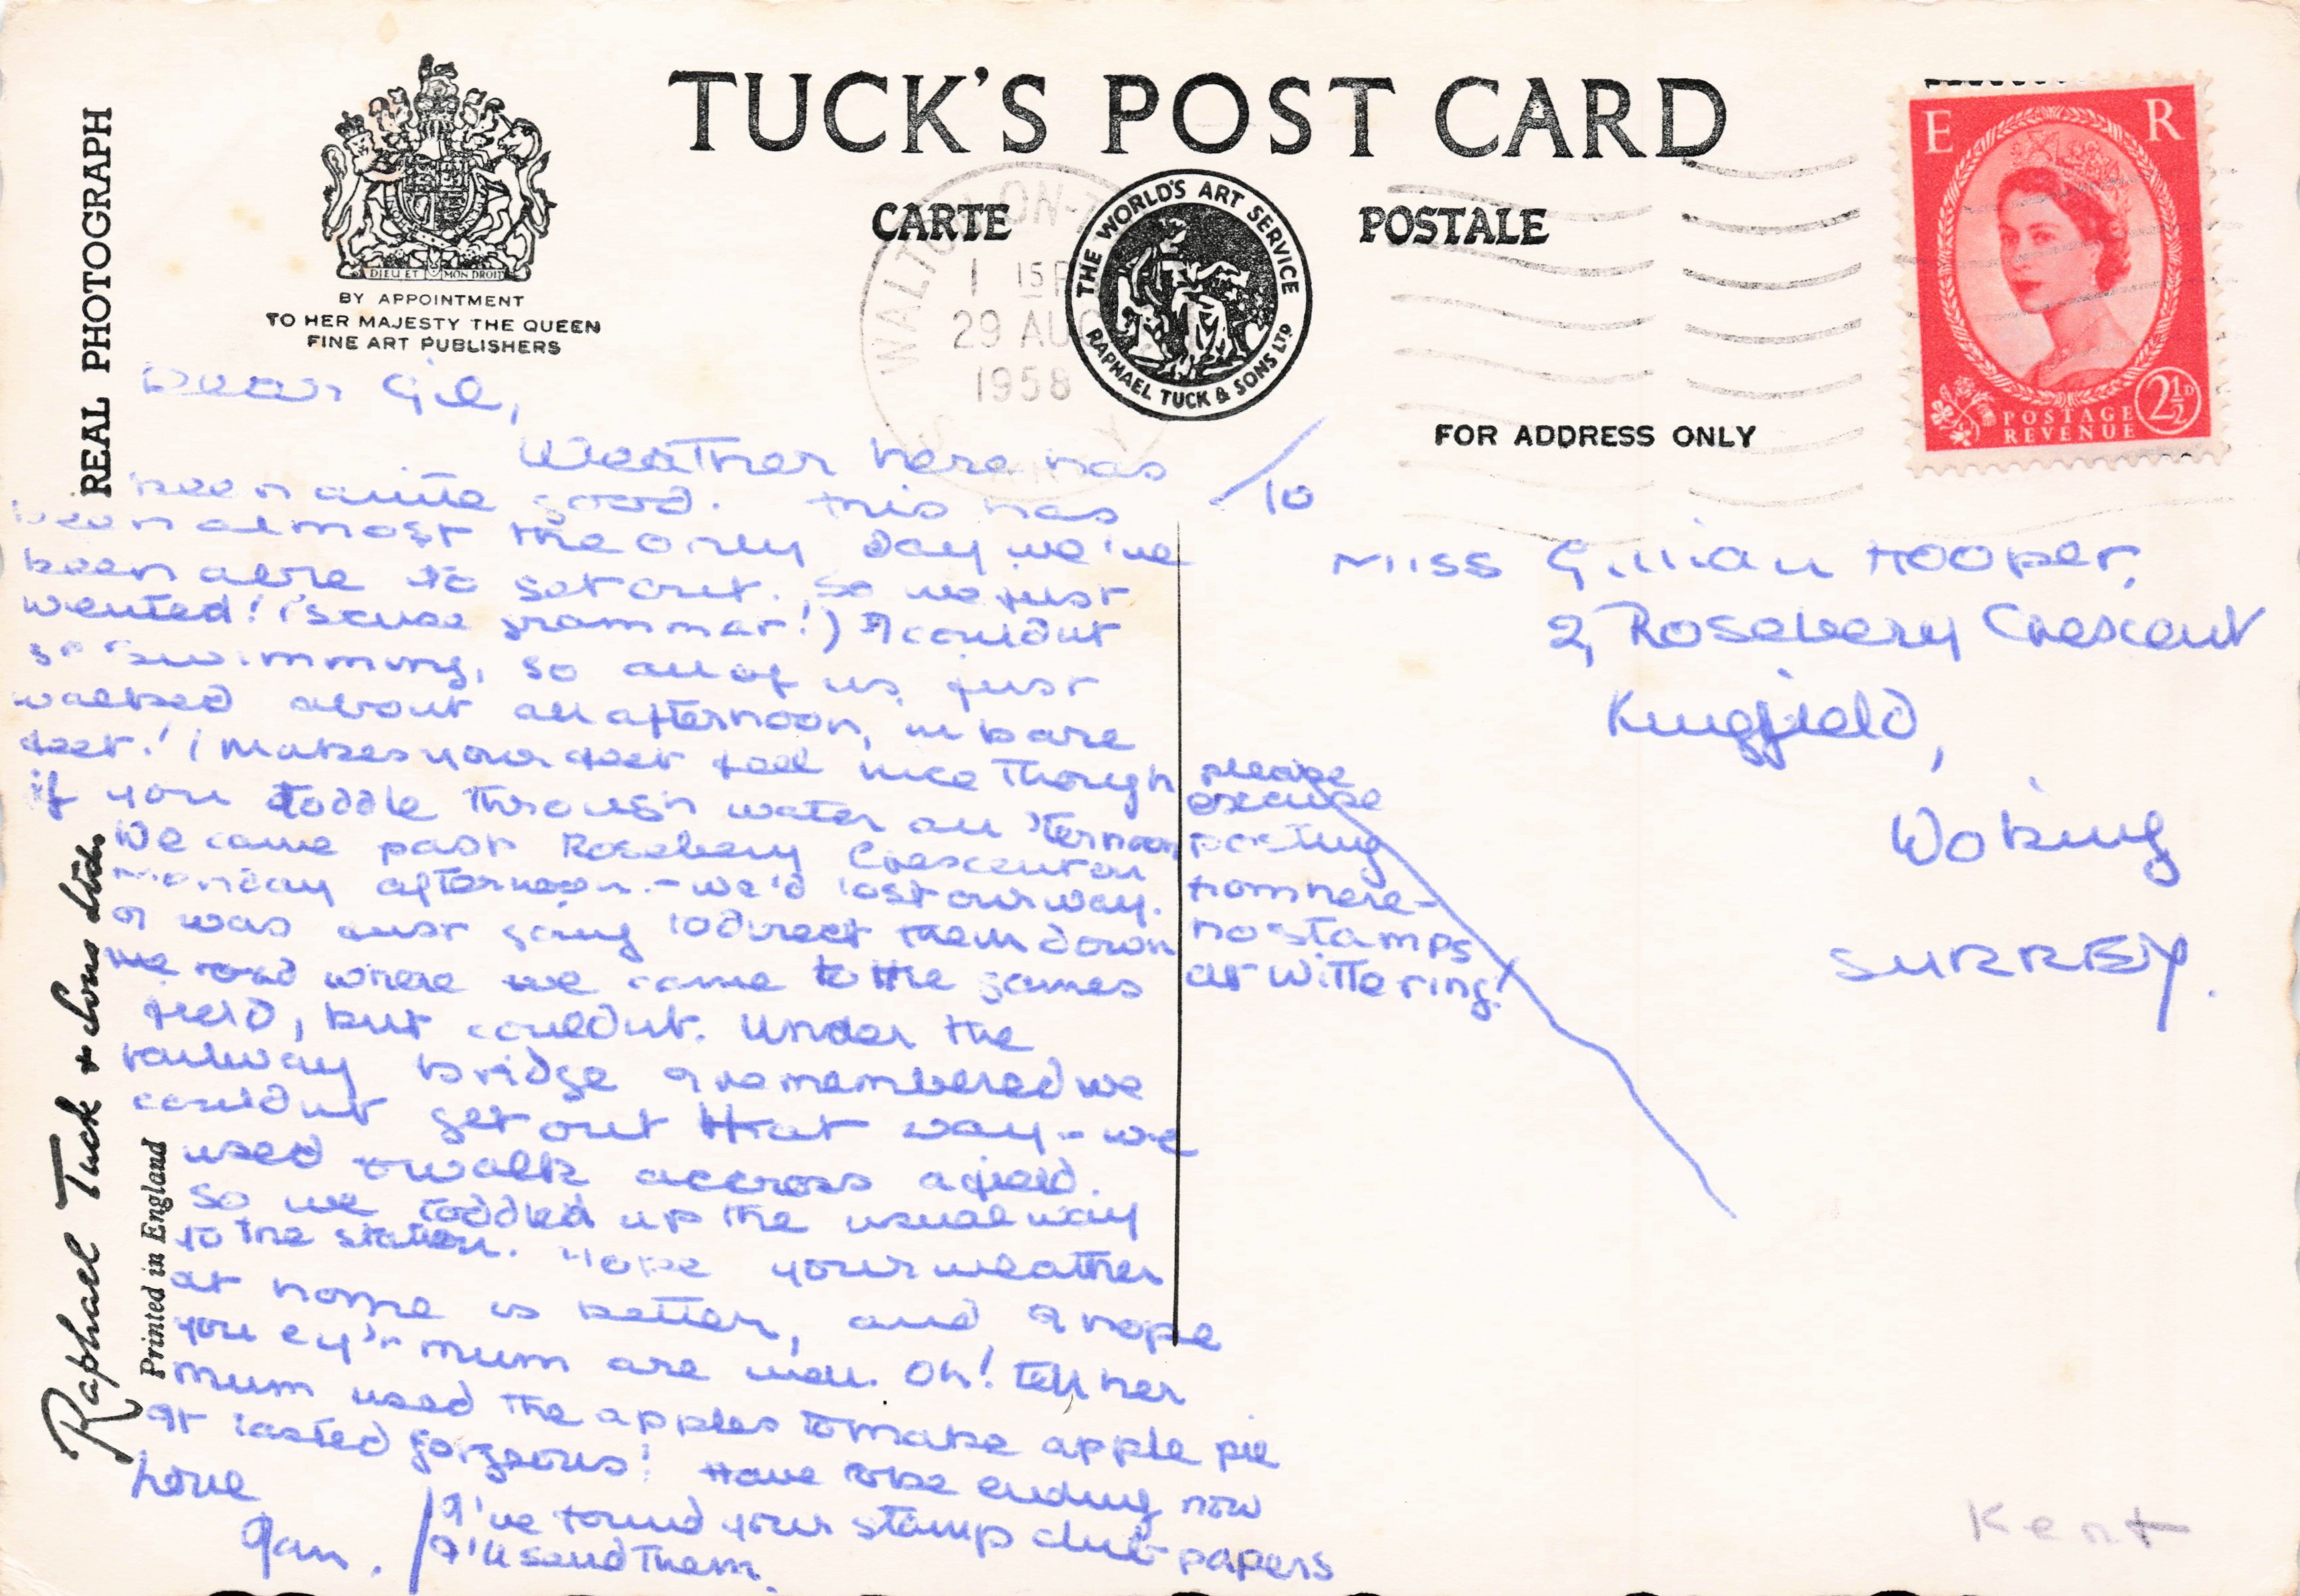 REAL PHOTOGRAPH
DIEU ET MON DROIT
BY APPOINTMENT
TO HER MAJESTY THE QUEEN
FINE ART PUBLISHERS
TUCK'S POST CARD
CARTE
POSTALE
THE WORLD'S ART SERVICE
RAPHAEL TUCK & SONS LTD
WALTON-ON-T
1 15 P
29 AUG
1958
FOR ADDRESS ONLY
E R
POSTAGE
REVENUE
2½D
Dear Gil,
Weather here has
been quite good. This has
been almost the only day we've
been able to get out. So we just
wented! ('scuse grammar!) I couldnt
go swimming, so all of us just
walked about all afternoon, in bare
feet! (Makes your feet feel nice though
if you toddle through water all 'ternoon
We came past Rosebery Crescent on
Monday afternoon - we'd lost our way.
I was just going to direct them down
the road where we came to the games
field, but couldnt. Under the
railway bridge I remembered we
couldnt get out that way - we
used to walk accross a field.
So we toddled up the usual way
to the station. Hope your weather
at home is better, and I hope
you 'n mum are well. Oh! Tell her
mum used the apples to make apple pie
It tasted gorgeous! Have to be ending now
Love
Jan.
I've found your stamp club papers
I'll send them.
please
excuse
posting
from here -
no stamps
at Wittering!
/10
Miss Gillian Hooper,
2, Rosebery Crescent
Kingfield,
Woking
SURREY.
Raphael Tuck & Sons Ltd.
Printed in England
Kent